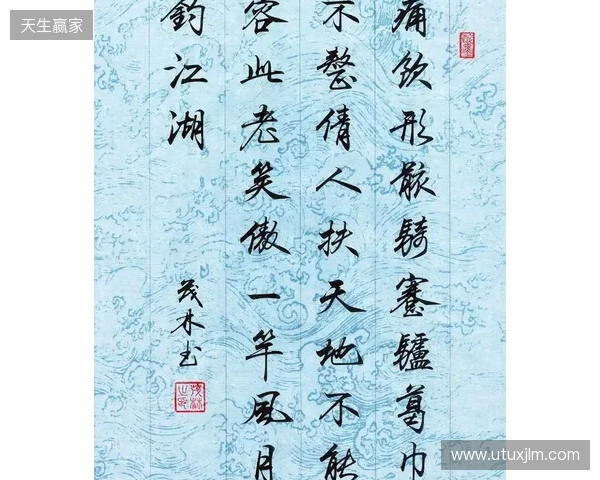 天生赢家
痛飲形骸騎蹇驢葛巾
不整倩人扶天地不能
容此老笑傲一竿風月
釣江湖
茂林书
www.utuxjlm.com